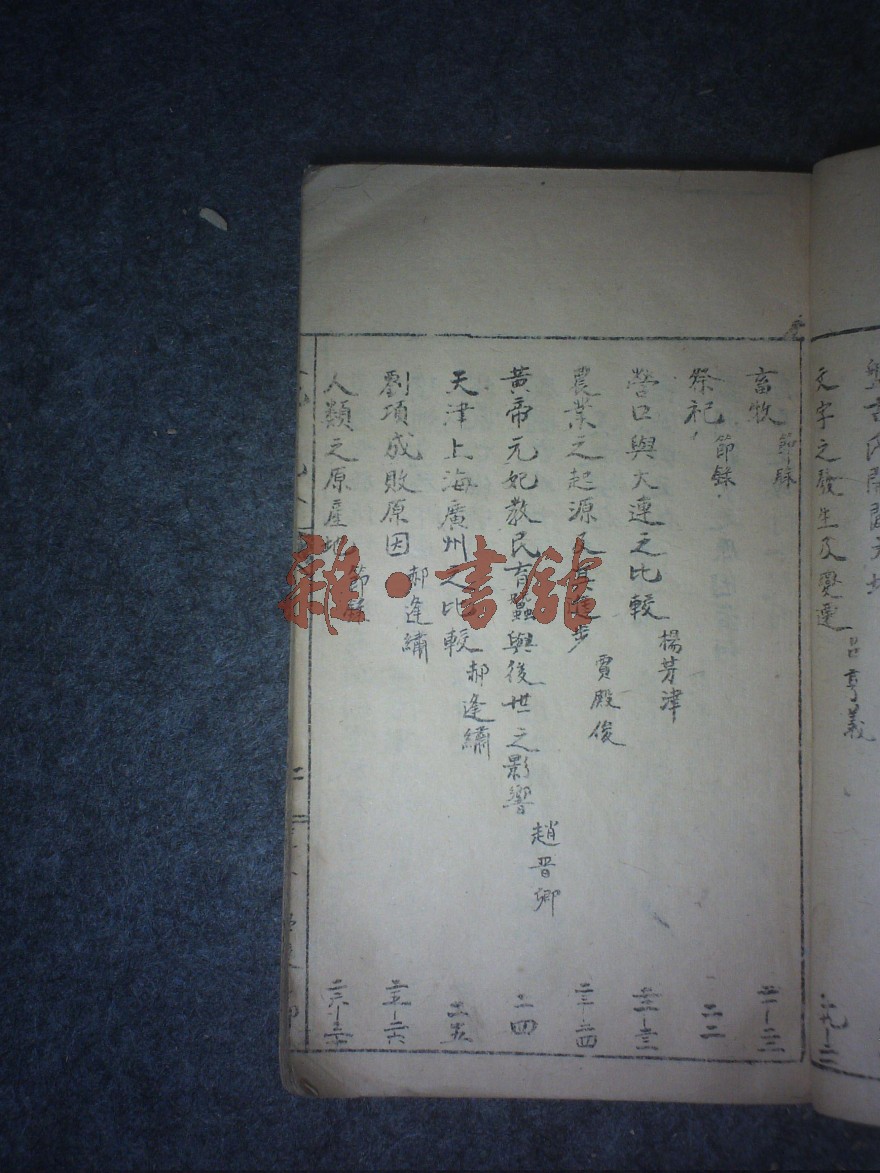 文字之發生及變遷 呂亨義
畜牧 節錄 二一-二二
祭祀 節錄 二二
營口與大連之比較 楊芳津 二二-二三
農業之起源及其進步 賈殿俊 二三-二四
黃帝元妃教民育蠶與後世之影響 趙晋卿 二四
天津上海廣州之比較 郝逢繡 二五
劉項成敗原因 郝逢繡 二五-二六
人類之原產地 節錄
雜·書館